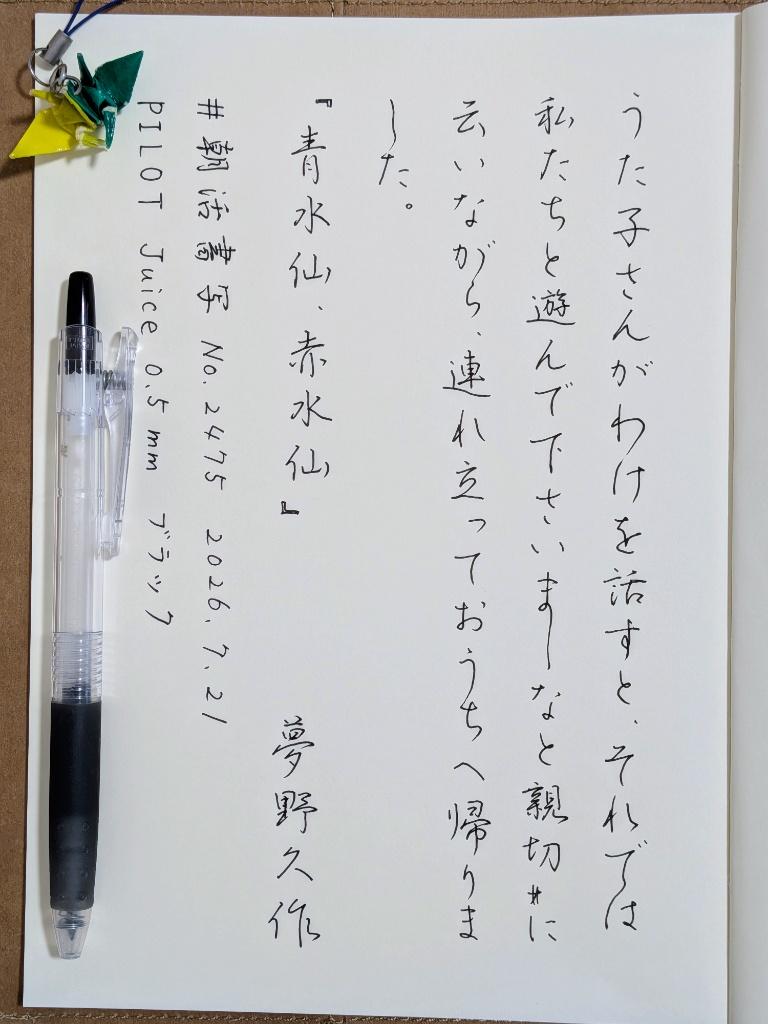 うた子さんがわけを話すと、それでは
私たちと遊んで下さいましなと親切〃に
云いながら、連れ立っておうちへ帰りま
した。
『青水仙、赤水仙』
夢野久作
#朝活書写 No.2475 2026.7.21
PILOT Juice 0.5mm ブラック